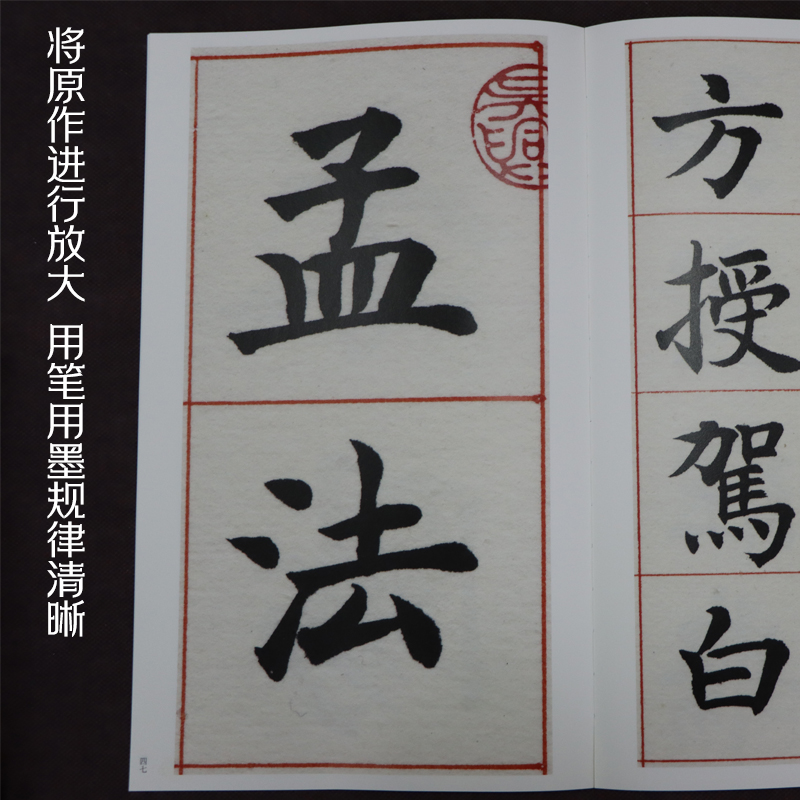 将原作进行放大 用笔用墨规律清晰
孟法
方授駕白
四七